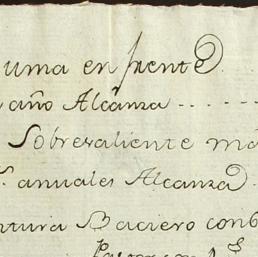 uma en frente
año Alcanza - - - -
Sobresaliente
anuales Alcanza.
ntura Baciero con